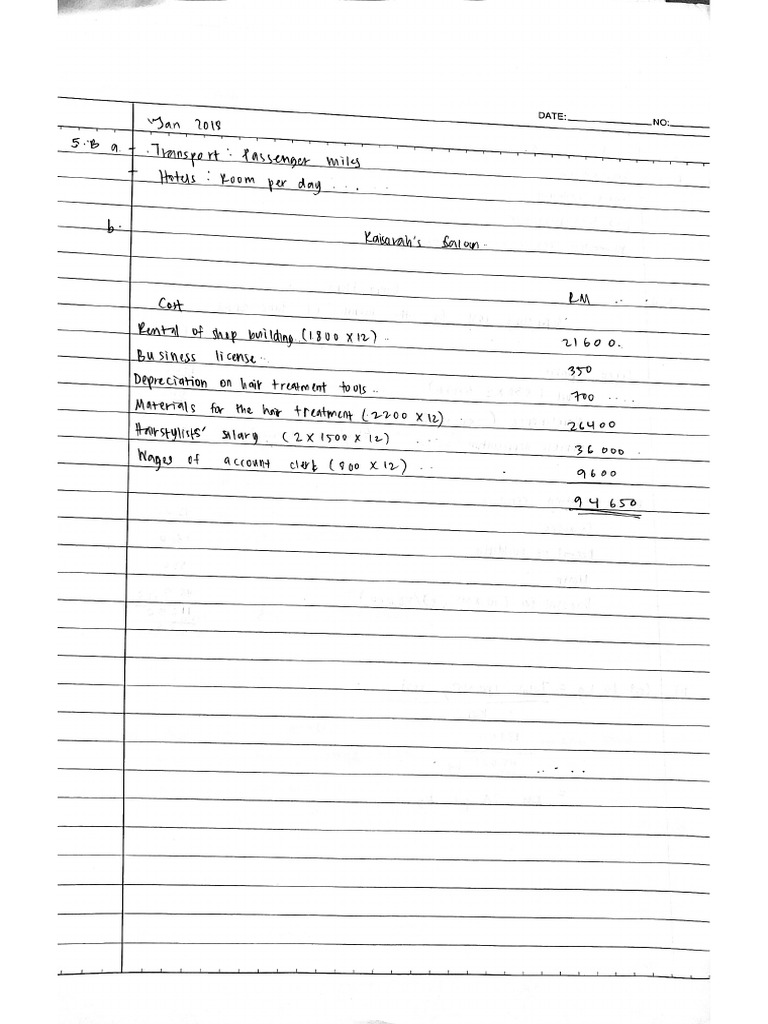 DATE: NO:
Jan 2018
5.B a. - Transport : Passenger miles
- Hotels : Room per day ...
b.
Kaisarah's Salon.
Cost RM
Rental of shop building (1800 x 12) 21600.
Business license 350
Depreciation on hair treatment tools 700
Materials for the hair treatment (2200 x 12) 26400
Hairstylists' salary (2 x 1500 x 12) 36000
Wages of account clerk (800 x 12) 9600
94 650